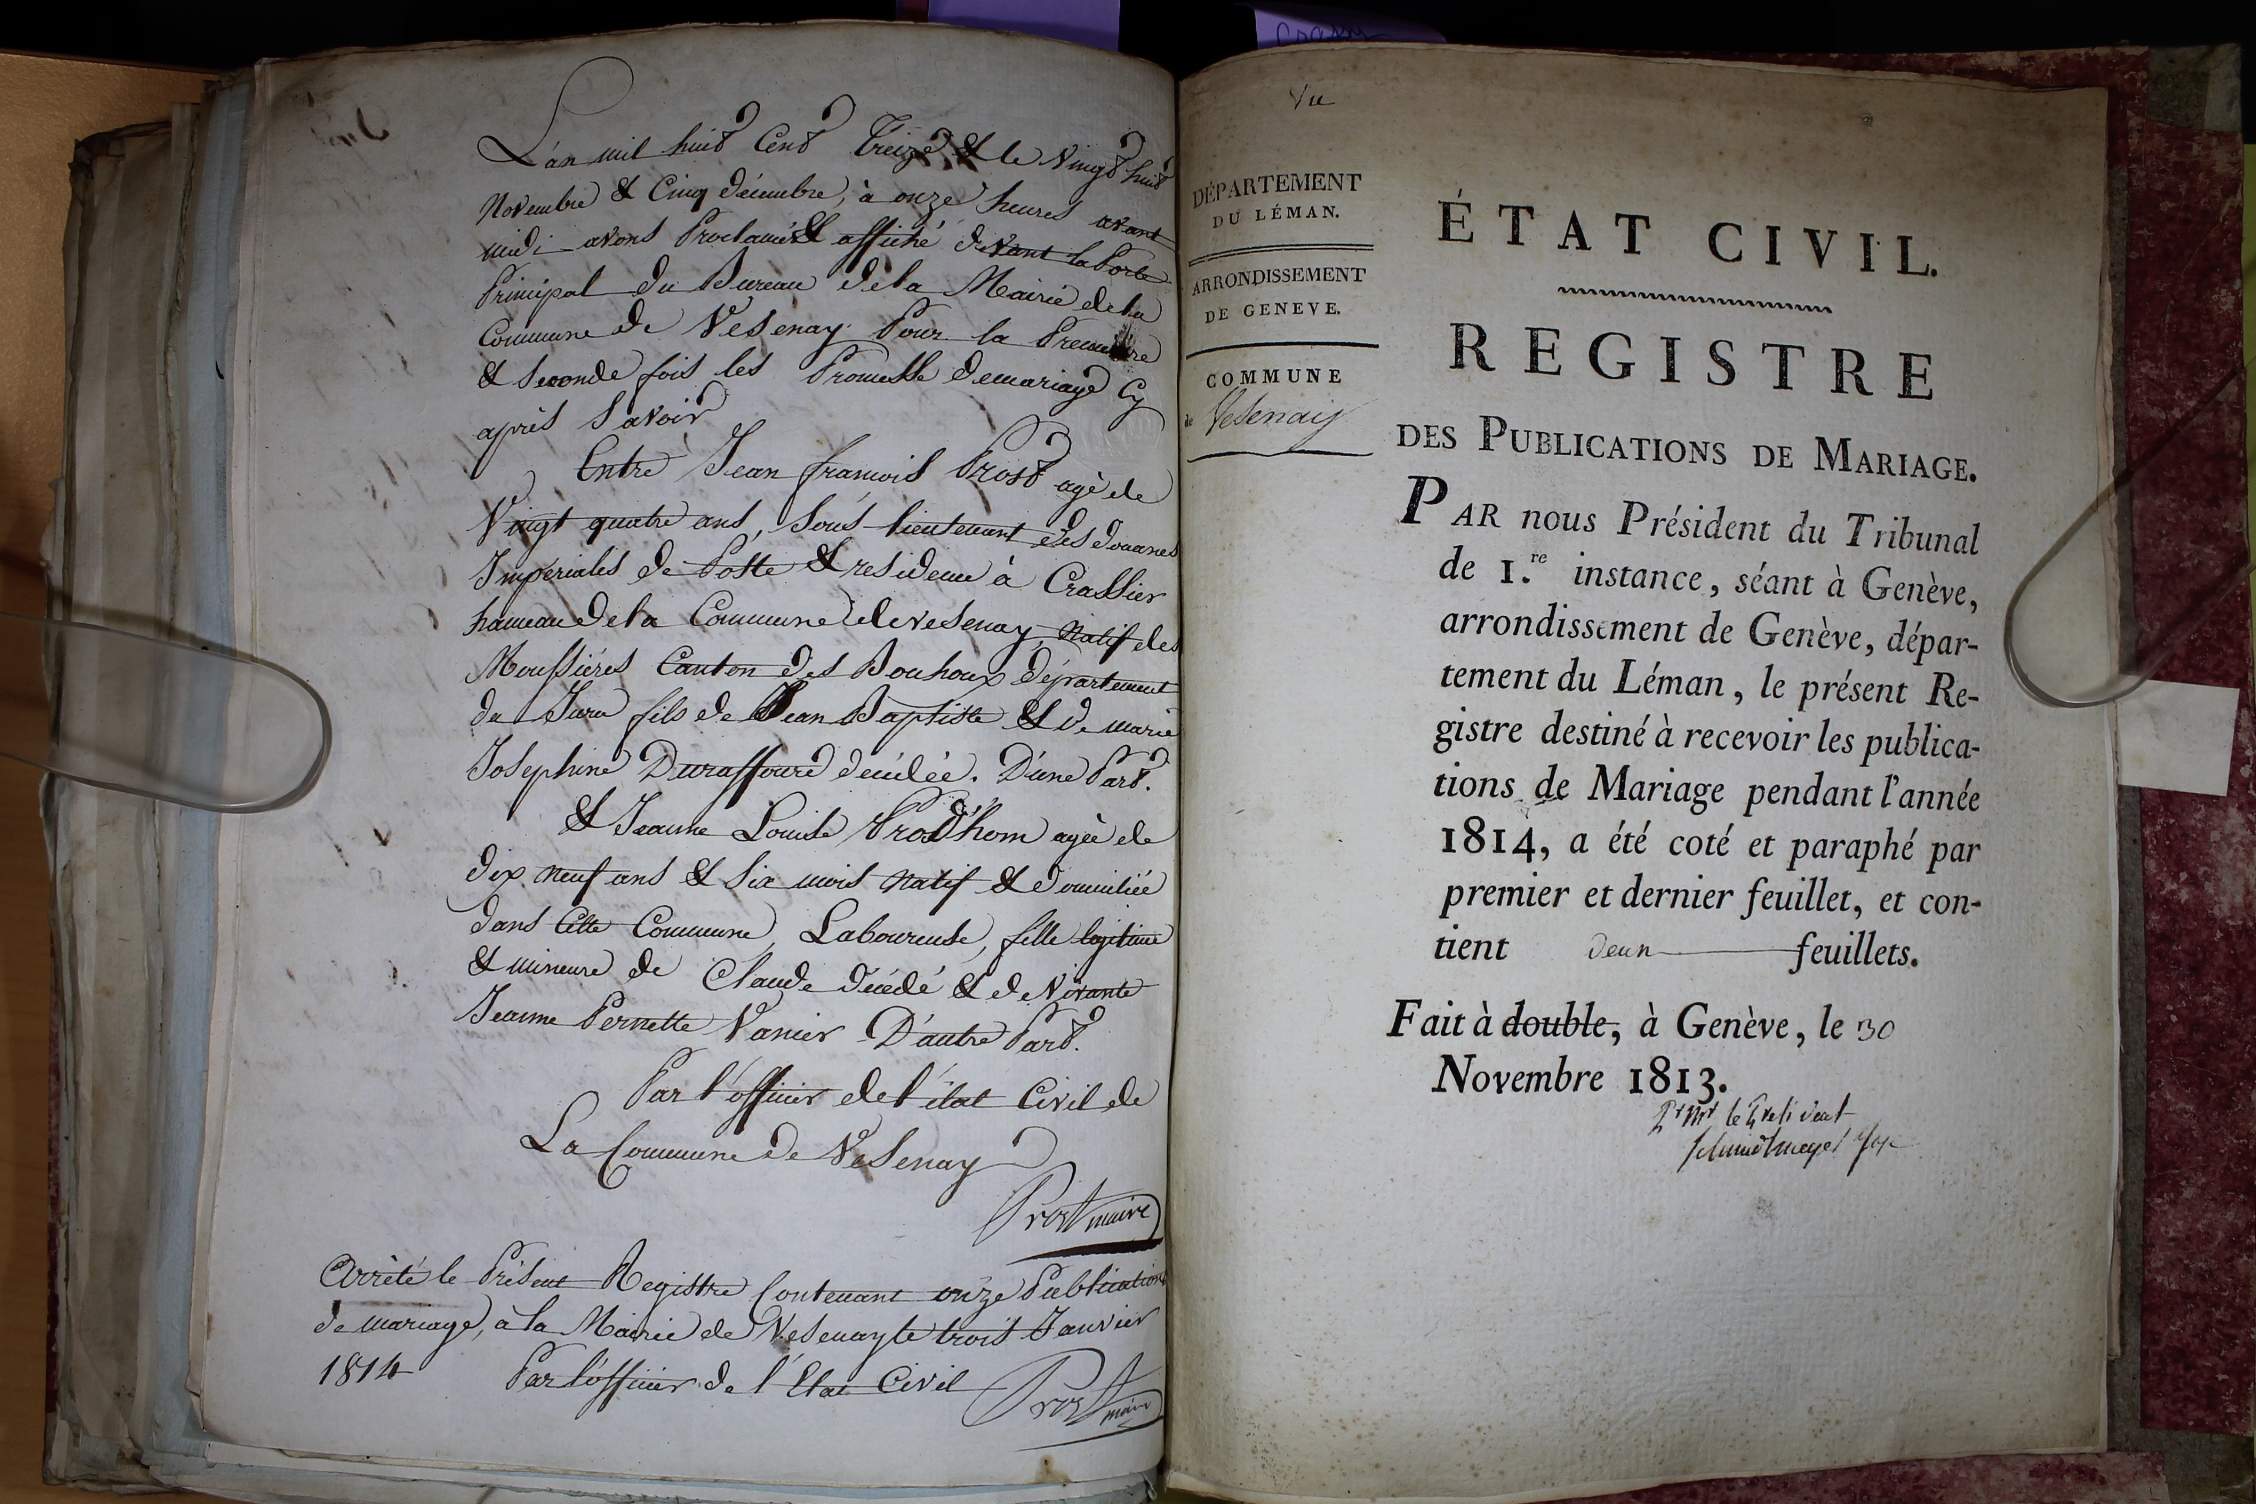 L'an mil huit Cent Treize & le Vingt huit
Novembre & Cinq décembre, à onze heures avant
midi avons Proclamé & affiché devant la Porte
Principal du Bureau de la Mairie de la
Commune de Vesenay Pour la Premiere
& Seconde fois les Promesse de mariage Cy
après Savoir
Entre Jean francois Prost agé de
Vingt quatre ans, Sous lieutenant des douanes
Impériales de Poste & residence à Crassier
hameau de la Commune de Vesenay, Natif des
Moussiéres Canton des Bouhoux département
du Jura fils de Jean Baptiste & de marie
Josephine Duraffourd décédée. D'une Part.
& Jeanne Louise Prod'hom agée de
dix neuf ans & Six mois Natif & domiciliée
dans Cette Commune, Laboureuse, fille legitime
& mineure de Claude décédé & de Vivante
Jeanne Pernette Vanier D'autre Part.
Par l'officier de l'état Civil de
La Commune de Vesenay
Prost maire
Arrêté le Présent Registre Contenant onze Publications
de mariage, à la Mairie de Vesenay le trois Janvier
1814 Par l'officier de l'Etat Civil
Prost maire
Vu
DÉPARTEMENT
DU LÉMAN.
ARRONDISSEMENT
DE GENEVE.
COMMUNE
de Vesenay
ÉTAT CIVIL.
REGISTRE
DES PUBLICATIONS DE MARIAGE.
PAR nous Président du Tribunal
de 1.re instance, séant à Genève,
arrondissement de Genève, dépar-
tement du Léman, le présent Re-
gistre destiné à recevoir les publica-
tions de Mariage pendant l'année
1814, a été coté et paraphé par
premier et dernier feuillet, et con-
tient deux feuillets.
Fait à double, à Genève, le 30
Novembre 1813.
Pr Mr le President